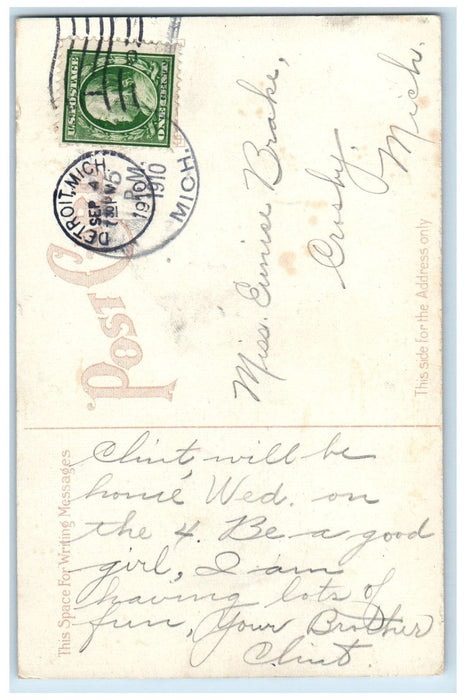 POST CARD
U.S. POSTAGE
ONE CENT
DETROIT, MICH.
SEP 4
730 PM
1910
6
P.M.
1910
MICH.
Miss. Eunice Brake,
Crosby,
Mich.
This side for the Address only
This Space For Writing Messages
Clint, will be
home Wed. on
the 4. Be a good
girl, I am
having lots of
fun, Your Brother
Clint.